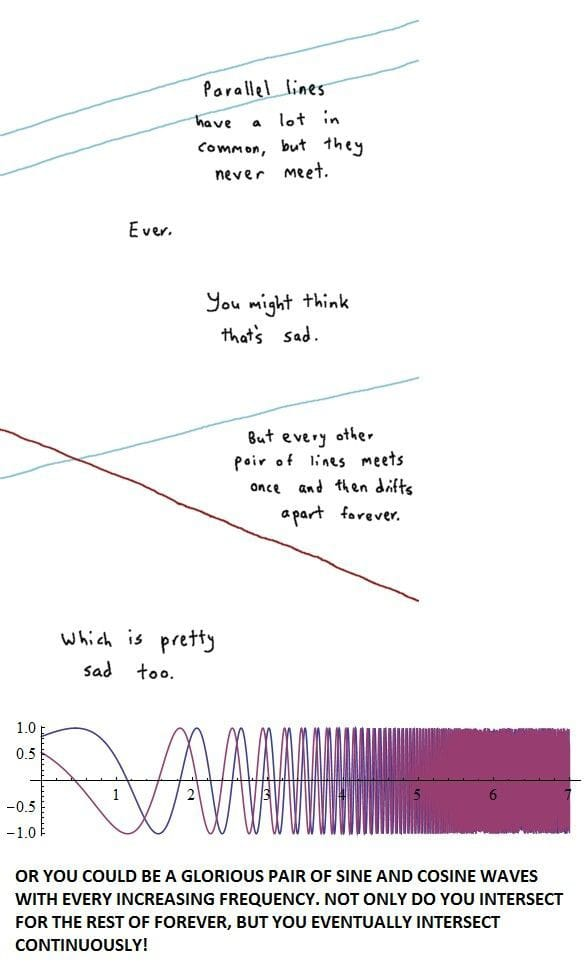 Parallel lines
have a lot in
common, but they
never meet.
Ever.
You might think
that's sad.
But every other
pair of lines meets
once and then drifts
apart forever.
Which is pretty
sad too.
1.0
0.5
-0.5
-1.0
1 2 3 4 5 6 7
OR YOU COULD BE A GLORIOUS PAIR OF SINE AND COSINE WAVES
WITH EVERY INCREASING FREQUENCY. NOT ONLY DO YOU INTERSECT
FOR THE REST OF FOREVER, BUT YOU EVENTUALLY INTERSECT
CONTINUOUSLY!